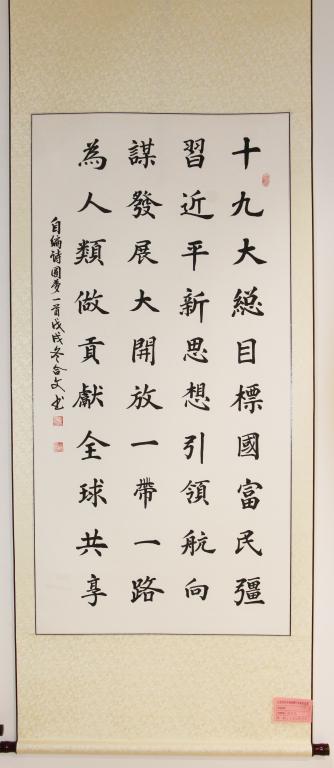 十九大總目標國富民彊
習近平新思想引領航向
謀發展大開放一帶一路
為人類做貢獻全球共享
自編詩圆夢一首戊戌冬合文书